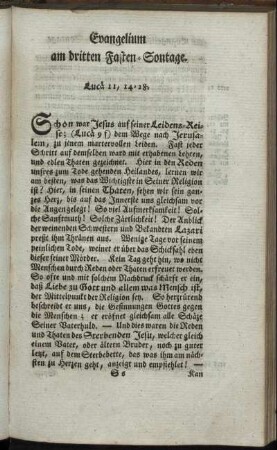 Evangelium
am dritten Fasten-Sontage.
Lucä 11, 14-28.
Schon war Jesus auf seiner Leidens-Rei-
se; (Lucä 9 f) dem Wege nach Jerusa-
lem, zu jenem martervollen Leiden. Fast jeder
Schritt auf demselben ward mit erhabenen Lehren,
und edlen Thaten gezeichnet. Hier in den Reden
unsres zum Tode gehenden Heilandes, lernen wir
am besten, was das Wichtigste in Seiner Religion
ist! Hier, in seinen Thaten, sehen wir sein gan-
zes Herz, bis auf das Innerste uns gleichsam vor
die Augen gelegt! So viel Aufmerksamkeit! Solche
Sanftmuth! Solche Zärtlichkeit! Der Anblick
der weinenden Schwestern und Bekandten Lazari
preßt ihm Thränen aus. Wenige Tage vor seinem
peinlichen Tode, weinet er über das Schicksahl eben
dieser seiner Mörder. Kein Tag geht hin, wo nicht
Menschen durch Reden oder Thaten erfreuet werden.
So ofte und mit solchem Nachdruck schärfte er ein,
daß Liebe zu Gott und allem was Mensch ist,
der Mittelpunckt der Religion sey. So herzrürend
beschreibt er uns, die Gesinnungen Gottes gegen
die Menschen; er eröfnet gleichsam alle Schäze
Seiner Vaterhuld. — Und dies waren die Reden
und Thaten des Sterbenden Jesu, welcher gleich
einem Vater, oder ältern Bruder, noch zu guter
Letzt, auf dem Sterbebette, das was ihm am näch-
sten zu Herzen geht, anzeigt und empfiehlet! —
Ss Kan